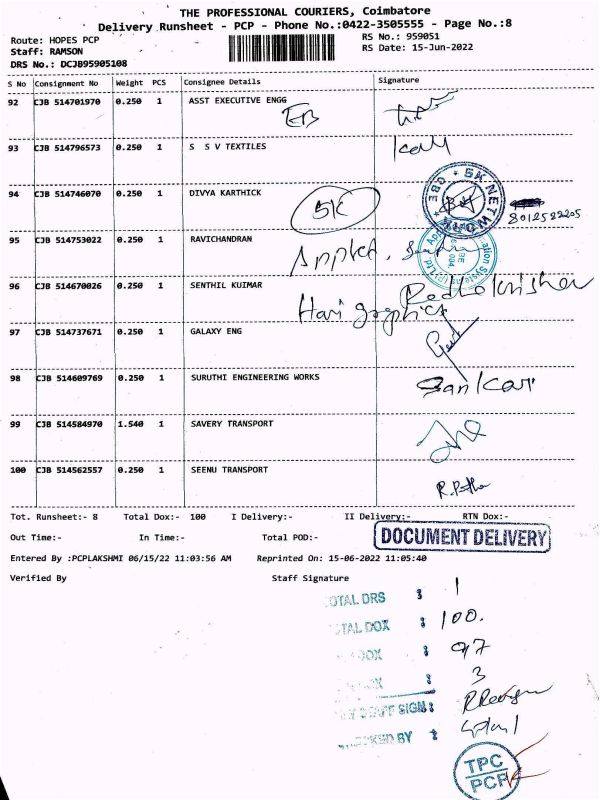 THE PROFESSIONAL COURIERS, Coimbatore
Delivery Runsheet - PCP - Phone No.:0422-3505555 - Page No.:8
Route: HOPES PCP
Staff: RAMSON
DRS No.: DCJB95905108
RS No.: 959051
RS Date: 15-Jun-2022
S No Consignment No Weight PCS Consignee Details Signature
92 CJB 514701970 0.250 1 ASST EXECUTIVE ENGG
EB
93 CJB 514796573 0.250 1 S S V TEXTILES
94 CJB 514746070 0.250 1 DIVYA KARTHICK
SK
SK NETWORK * CBE *
8012582205
95 CJB 514753022 0.250 1 RAVICHANDRAN
96 CJB 514670026 0.250 1 SENTHIL KUIMAR
Radhakrishnan
Hari graphics
97 CJB 514737671 0.250 1 GALAXY ENG
98 CJB 514609769 0.250 1 SURUTHI ENGINEERING WORKS
Sankar
99 CJB 514584970 1.540 1 SAVERY TRANSPORT
100 CJB 514562557 0.250 1 SEENU TRANSPORT
Tot. Runsheet:- 8 Total Dox:- 100 I Delivery:- II Delivery:- RTN Dox:-
Out Time:- In Time:- Total POD:-
DOCUMENT DELIVERY
Entered By :PCPLAKSHMI 06/15/22 11:03:56 AM Reprinted On: 15-06-2022 11:05:40
Verified By Staff Signature
OTAL DRS : 1
TAL DOX : 100.
DOX : 97
: 3
STAFF SIGN :
CKED BY :
TPC
PCP